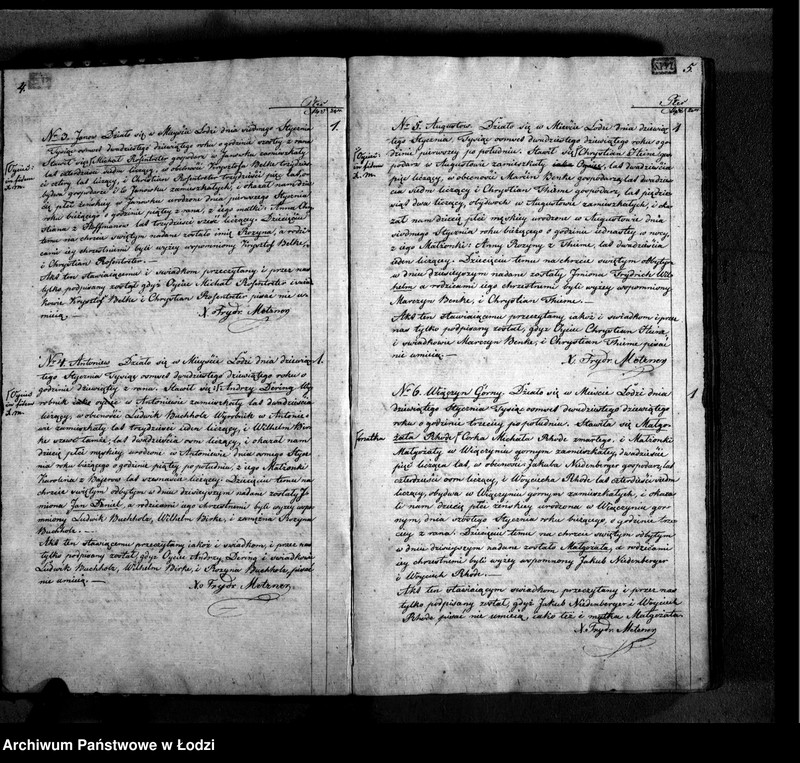 4.
Płeć
N: 3. Janow. Działo się w Mieyście Łodzi dnia siodmego Stycznia
Tysiąc osmset dwudziestego dziewiątego roku o godzinie osmey z rana
Stawił się Michał Rosentreter gospodarz w Janowie zamieszkały
lat czterdzieści siedm liczący, w obecności Krzysztofa Belke
i cztery lat liczący, i Chrystian Rosentreter trzydzieści pięć lat
gospodarze w Janowie zamieszkałych, i okazał nam dziecię
płci żeńskiey w Janowie urodzone dnia pierwszego Stycznia
roku bieżącego o godzinie piątey z rana, z iego małżonki Anna
z Steffmanow lat trzydzieści liczącey. Dziecięciu
temu na chrzcie świętym nadane zostało imię Rozyna, a rodzi-
cami iego chrzestnemi byli wyżey wspomniony Krzysztof Belke,
i Chrystian Rosentreter.—
Akt ten stawaiącemu i świadkom przeczytany i przez nas
tylko podpisany został gdyż Oyciec Michał Rosentreter i świad-
kowie Krzysztof Belke i Chrystian Rosentreter pisać nie u-
mieią.—
X. Frydr. Metzner
1.
N: 4. Antoniew. Działo się w Mieyście Łodzi dnia dziewią-
tego Stycznia Tysiąc osmset dwudziestego dziewiątego roku o
godzinie dziewiątey z rana. Stawił się Andrzey Dering Wy-
robnik w Antoniewie zamieszkały lat dwadzieścia
liczący, w obecności Ludwik Buchholz Wyrobnik w Antonie-
wie zamieszkały lat trzydzieści ieden liczący, i Wilhelm Bir-
ke tamże, lat dwadzieścia osm liczący, i okazał nam
dziecię płci męskiey urodzone w Antoniewie dnia osmego Stycz-
nia roku bieżącego o godzinie piątey po południu, z iego Małżonki
Karolina z Bajerow lat szesnaście liczącey. Dziecięciu temu na
chrzcie świętym odbytym w dniu dzisieyszym nadane zostały I-
miona Jan Daniel, a rodzicami iego chrzestnemi byli wyżey wspo-
mniony Ludwik Buchholz, Wilhelm Birke, i zamężna Rozyna
Buchholz.—
Akt ten stawaiącemu iakoż i świadkom, i przez nas
tylko podpisany został, gdyż Oyciec Andrzey Dering i świadkowie
Ludwik Buchholz, Wilhelm Birke, i Rozyna Buchholz, pisać
nie umieią.—
X. Frydr. Metzner.
1.
5.
Płeć
N: 5. Augustow. Działo się w Mieście Łodzi dnia dziewią-
tego Stycznia Tysiąc osmset dwudziestego dziewiątego roku o go-
dzinie pierwszey po południu. Stawił się Chrystian gos-
podarz w Augustowie zamieszkały lat dwadzieścia
pięć liczący, w obecności Marcin Benke gospodarz lat dwadzie-
ścia siedm liczący i Chrystian Thieme gospodarz, lat pięćdzie-
siąt dwa liczący, obydwoch w Augustowie zamieszkałych, i oka-
zał nam dziecię płci męskiey urodzone w Augustowie dnia
siodmego Stycznia roku bieżącego o godzinie iedenastey w nocy,
z iego Małżonki: Anny Rozyny z Thieme, lat dwadzieścia
ieden liczącey. Dziecięciu temu na chrzcie świętym odbytym
w dniu dzisieyszym nadane zostały Imiona Frydrich Wil-
helm a rodzicami iego chrzestnemi byli wyżey wspomniony
Marczyn Benke, i Chrystian Thieme.—
Akt ten stawaiącemu przeczytany, iakoż i świadkom i prze
nas tylko podpisany został, gdyż Oyciec Chrystian
i świadkowie Marczyn Benke, i Chrystian Thieme pisać
nie umieią.—
X. Frydr. Metzner
1
N: 6. Wiączyn Gorny. Działo się w Mieście Łodzi dnia
dziewiątego Stycznia Tysiąc osmset dwudziestego dziewiątego
roku o godzinie trzeciey po południu. Stawiła się Małgo-
rzata Rhode Corka Michała Rhode zmarłego i Małżonki
Małgorzaty w Wiączyniu gornym zamieszkała, dwadzieścia
pięć licząca lat, w obecności Jakuba Niedenberger gospodarz, lat
czterdzieści osm liczący, i Woyciecha Rhode lat czterdzieści siedm
liczący, obydwa w Wiączyniu gornym zamieszkałych, i okaza-
ła nam dziecię płci żeńskiey urodzone w Wiączyniu gor-
nym, dnia szostego Stycznia roku bieżącego, o godzinie trze-
ciey z rana. Dziecięciu temu na chrzcie świętym odbytym
w dniu dzisieyszym nadane zostało Małgorzata, a rodzicami
iey chrzestnemi byli wyżey wspomniony Jakub Niedenberger
i Woyciech Rhode.—
Akt ten stawaiącym świadkom przeczytany i przez nas
tylko podpisany został, gdyż Jakub Niedenberger i Woyciech
Rhode pisać nie umieią, iako też i matka Małgorzata
X. Frydr. Metzner
1
Archiwum Państwowe w Łodzi